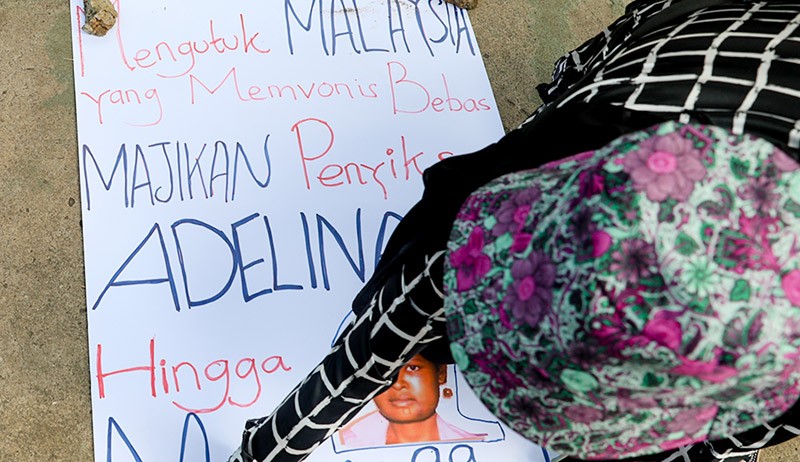 Mengutuk MALAYSIA
yang Memvonis Bebas
MAJIKAN Penyiksa
ADELINA
Hingga